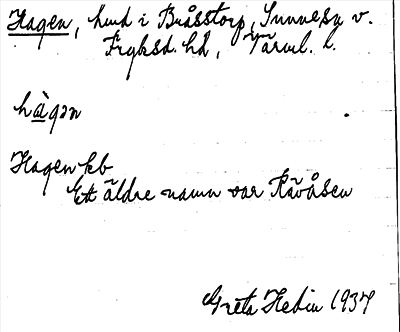 Hagen, hmd i Bråsstorp, Sunnesby v.
Fryksd. hd, Värml. l.
hàgən
Hagen kb
Ett äldre namn var Rävåsen
Greta Hedin 1937